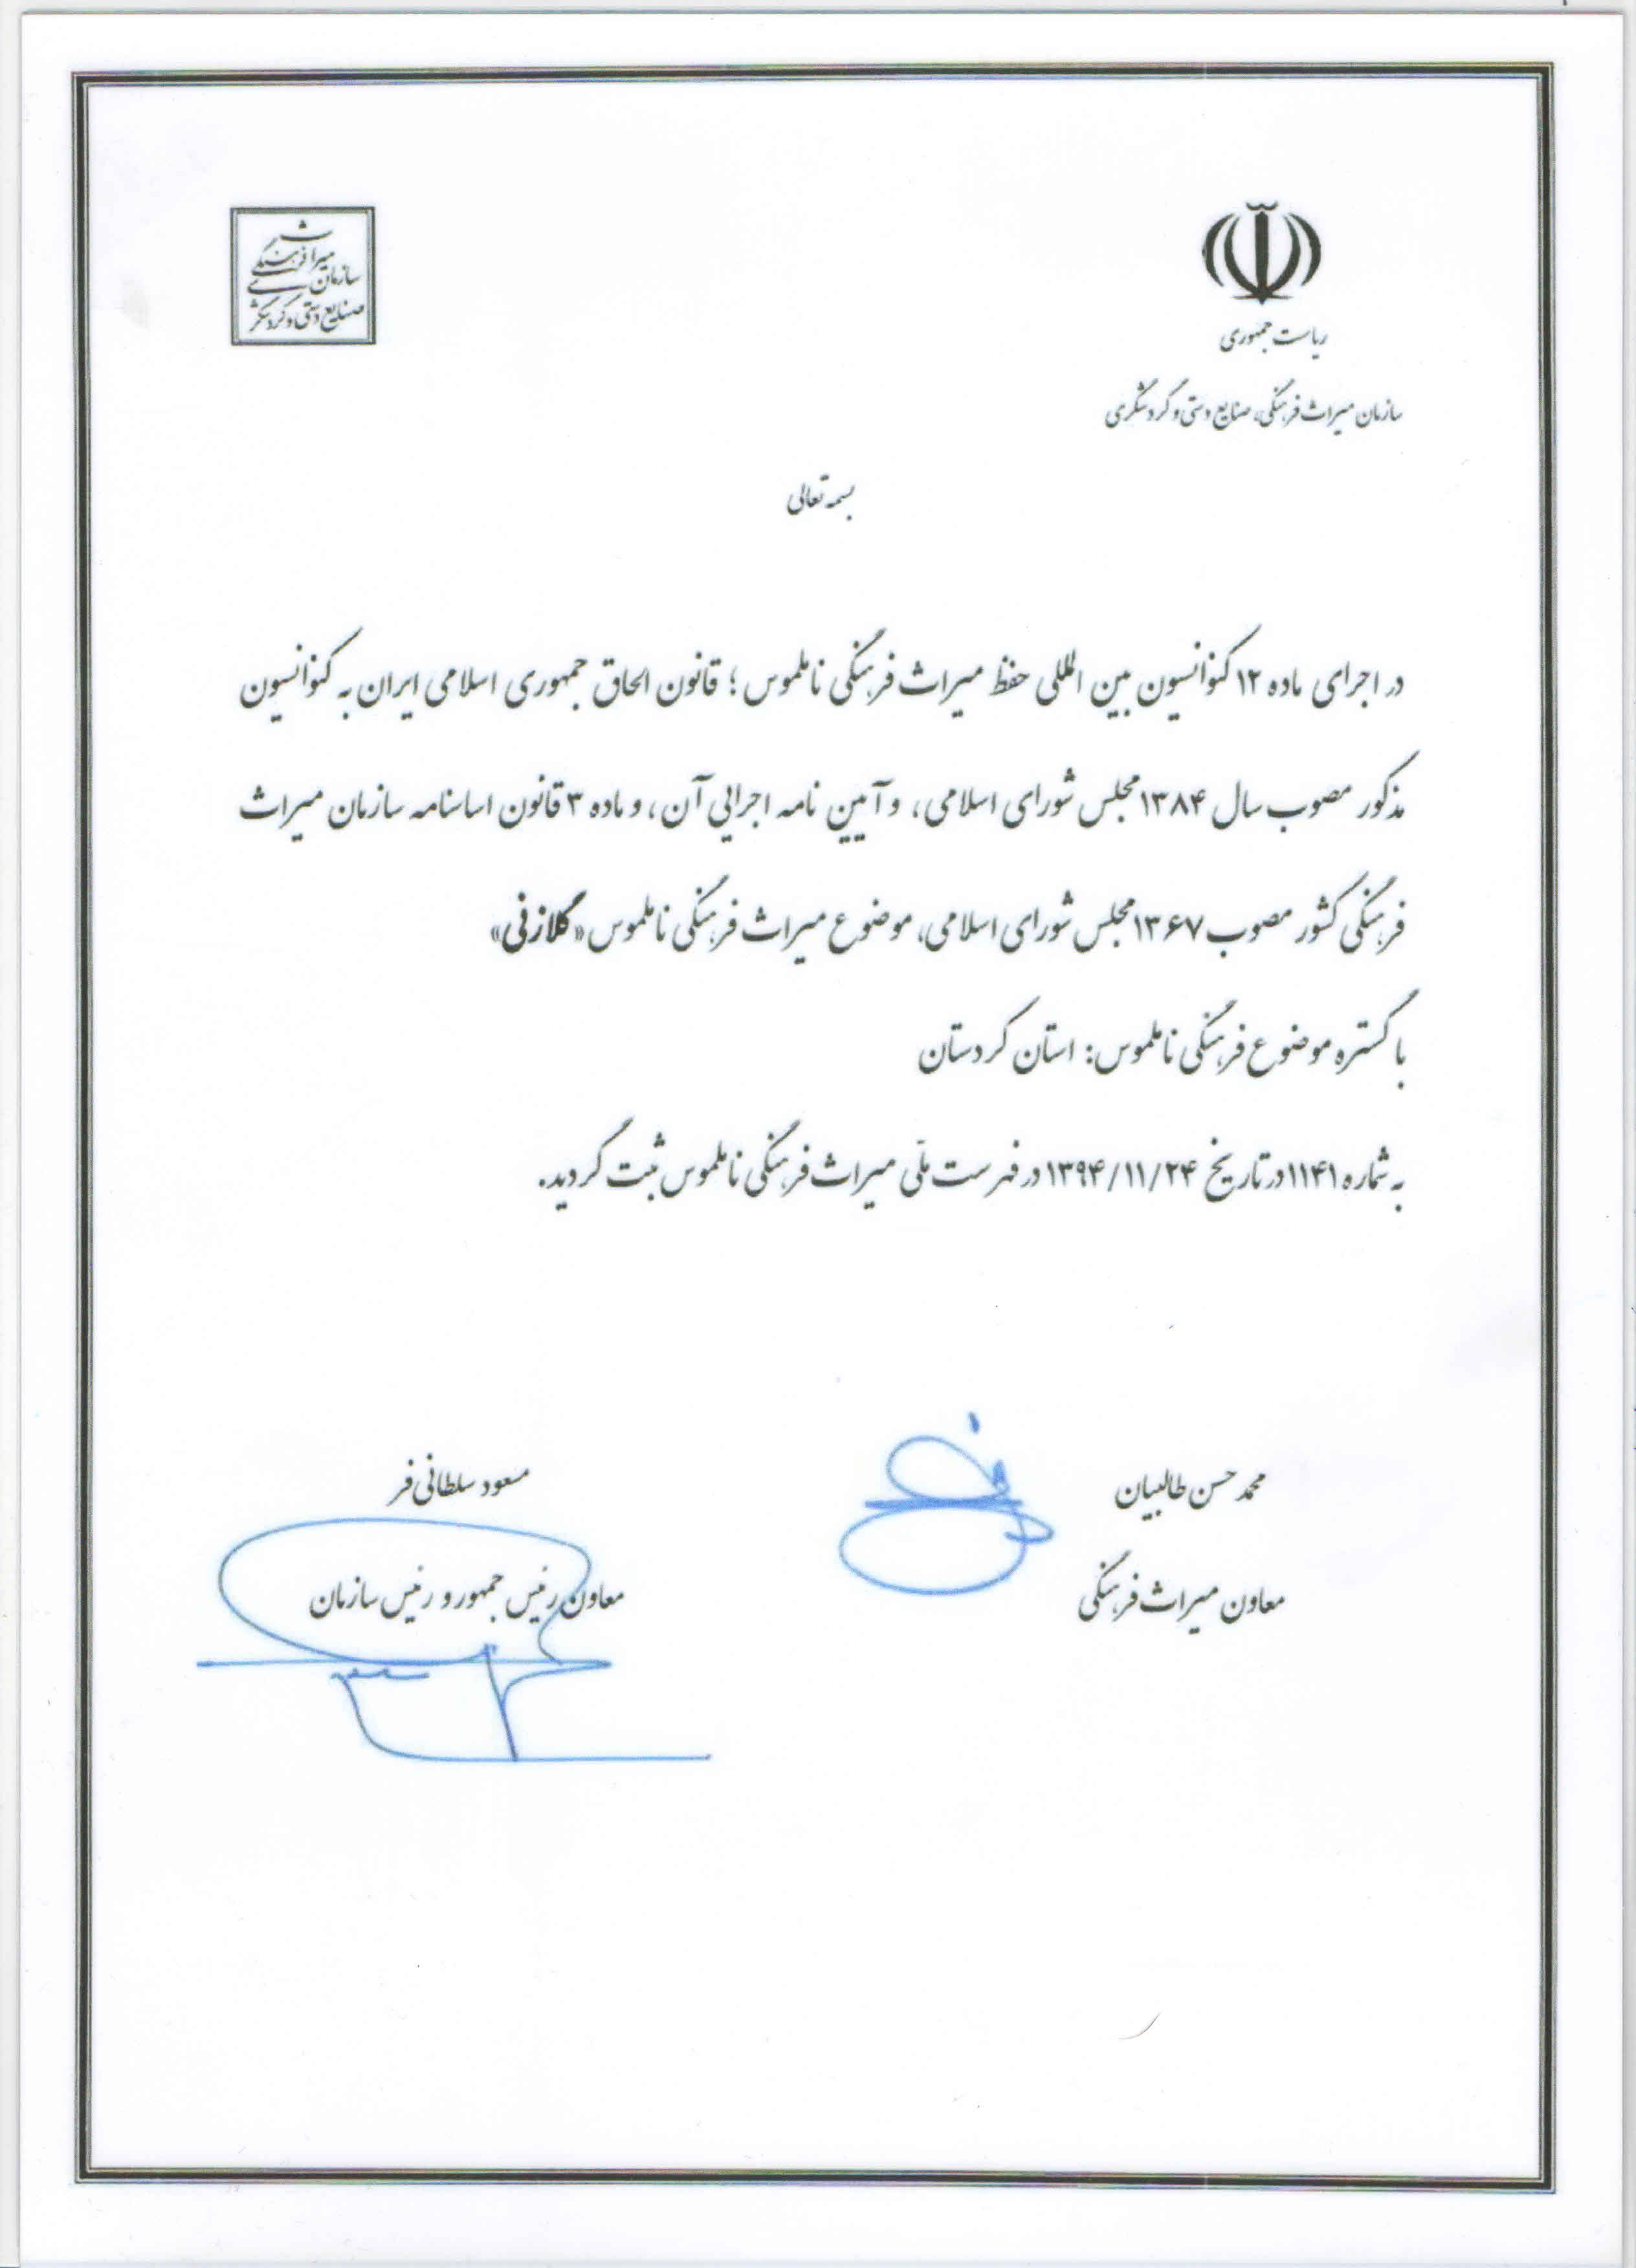 ریاست جمهوری
سازمان میراث فرهنگی، صنایع دستی و گردشگری
سازمان میراث فرهنگی
صنایع دستی و گردشگری
بسمه تعالی
در اجرای ماده ۱۲ کنوانسیون بین المللی حفظ میراث فرهنگی ناملموس؛ قانون الحاق جمهوری اسلامی ایران به کنوانسیون
مذکور مصوب سال ۱۳۸۴ مجلس شورای اسلامی، و آیین نامه اجرایی آن، و ماده ۳ قانون اساسنامه سازمان میراث
فرهنگی کشور مصوب ۱۳۶۷ مجلس شورای اسلامی، موضوع میراث فرهنگی ناملموس «گلازنی»
با گستره موضوع فرهنگی ناملموس: استان کردستان
به شماره ۱۱۴۱ در تاریخ ۱۳۹۴/۱۱/۲۴ در فهرست ملّی میراث فرهنگی ناملموس ثبت گردید.
محمد حسن طالبیان
معاون میراث فرهنگی
مسعود سلطانی فر
معاون رئیس جمهور و رئیس سازمان